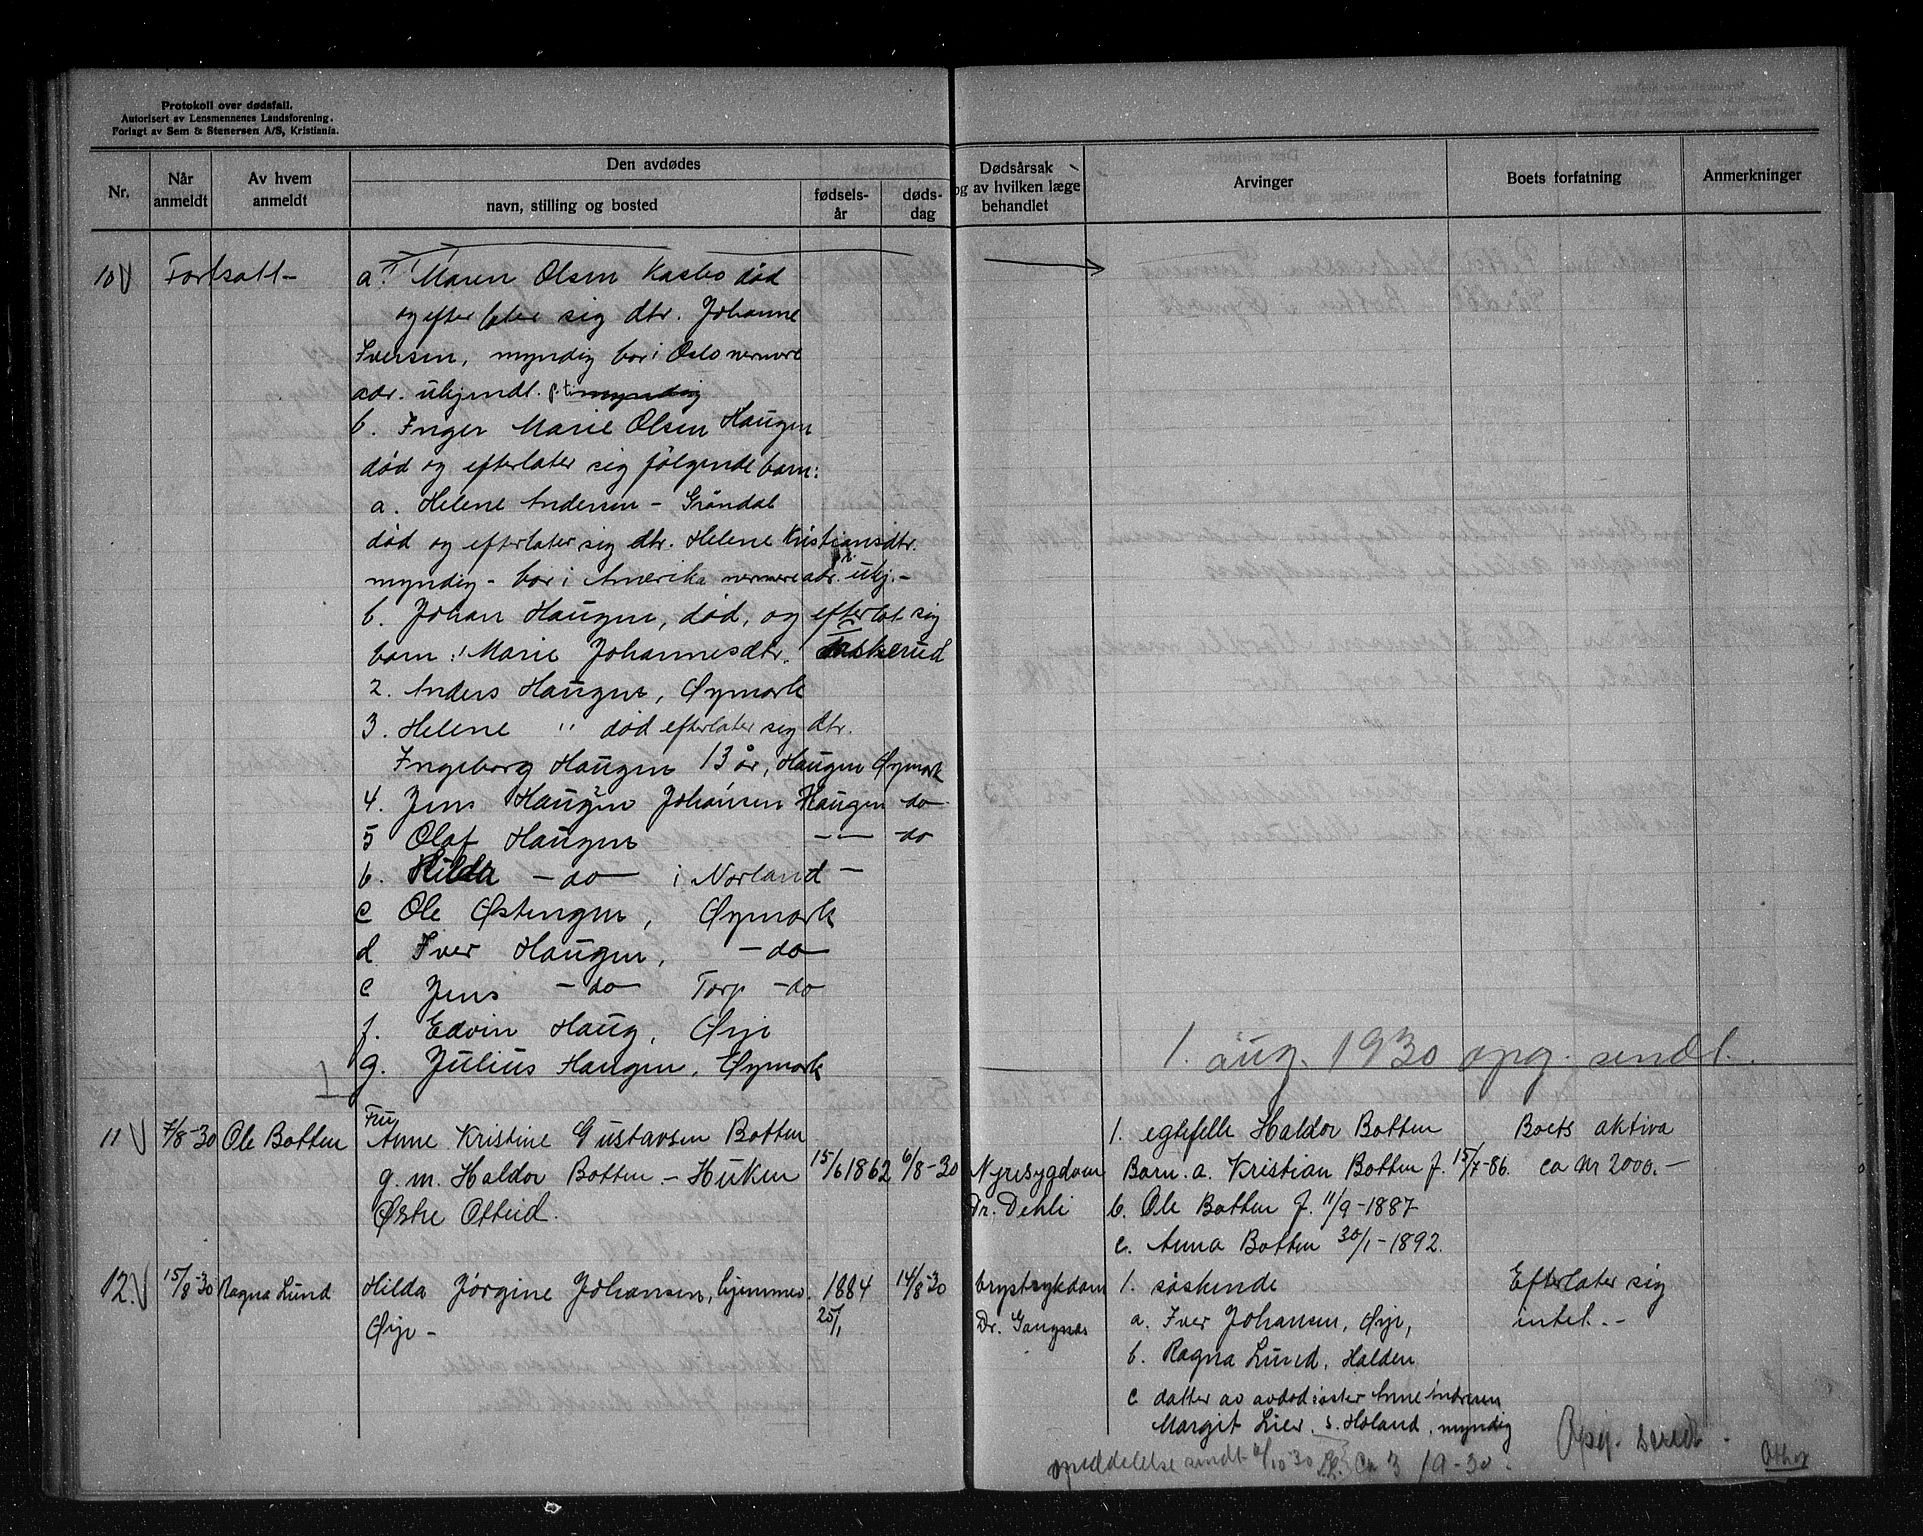 Protokoll over dødsfall.
Autorisert av Lensmennenes Landsforening.
Forlagt av Sem & Stenersen A/S, Kristiania.
Nr.
Når anmeldt
Av hvem anmeldt
Den avdødes
navn, stilling og bosted
fødsels-år
døds-dag
Dødsårsak og av hvilken læge behandlet
Arvinger
Boets forfatning
Anmerkninger
10 V Fortsatt -
a. Maren Olsen Kasbo død
og efter later sig dtr. Johanne
Iversen, myndig bor i Oslo nermere
adr. ukjendt. p.t. myndig
b. Inger Marie Olsen Haugen
død og efterlater sig følgende barn:
a. Helene Andersen - Grøndal
død og efterlater sig dtr. Helene Kristiansdtr.
myndig - bor i Amerika nermere adr. ukj. -
b. Johan Haugen, død, og efterlot sig
barn: 1 Marie Johannesdtr.
2. Anders Haugen, Øymark
3. Helene " død efterlater sig dtr.
Ingeborg Haugen 13 år, Haugen Øymark
4. Jens Haugen Johansen Haugen - do -
5 Olaf Haugen -"- - do
6. Hilda - do - i Norland -
c Ole Østengen, Øymark
d Iver Haugen, - do -
e Jens - do - Torp - do
f. Edvin Haug, Ørje
g. Julius Haugen, Øymark
1. aug. 1930 opg. sendt.
11 V 7/8-30 Ole Botten Fru
Anne Kristine Gustavsen Botten
g.m. Haldor Botten - Huken 15/6 1862 6/8-30
Østre Otteid.
Nyresygdom
Dr. Dehli
1. egtefelle Haldor Botten
Barn. a. Kristian Botten f. 15/7-86.
b. Ole Botten f. 11/9-1887
c. Anna Botten 30/1-1892.
Boets aktiva
ca kr 2000.-
12. V 15/8-30 Ragna Lund Hilda Jørgine Johansen, hjemmev. 1884 14/8-30
Ørje - 25/1
brystsykdom
Dr. Gangnæs
1. søskende
a. Iver Johansen, Ørje,
b. Ragna Lund, Halden
c datter av avdød søster Anne Andresen
Margit Lier, S. Høland, myndig
Efterlater sig
intet. -
Opg. sendt -
meddelelse sendt 6/10 30 19-30.